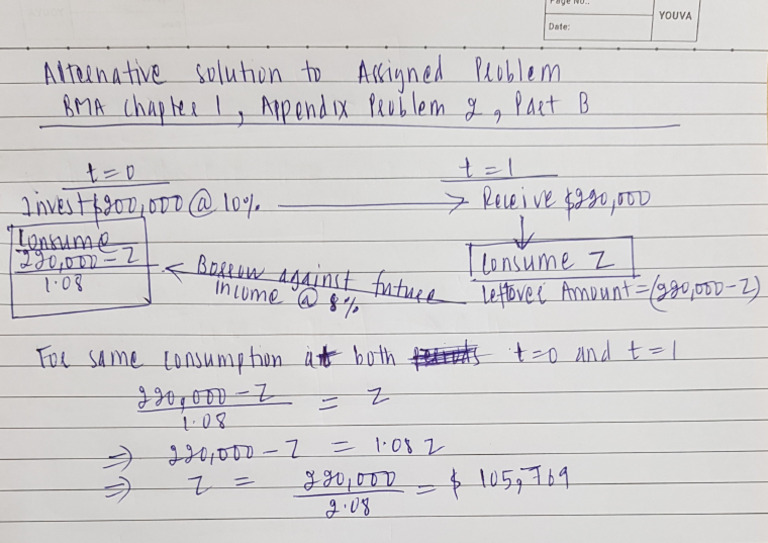 Page No.:
Date:
YOUVA
Alternative solution to Assigned Problem
BMA Chapter 1, Appendix Problem 2, Part B
t=0
t=1
Invest $200,000 @ 10%
Receive $220,000
Consume
220,000 - Z
1.08
Borrow against future
Income @ 8%
Consume Z
Leftover Amount = (220,000-Z)
For same consumption at both periods t=0 and t=1
220,000 - Z
1.08
= Z
⇒ 220,000 - Z = 1.08 Z
⇒ Z = 220,000
2.08
= $ 105,769